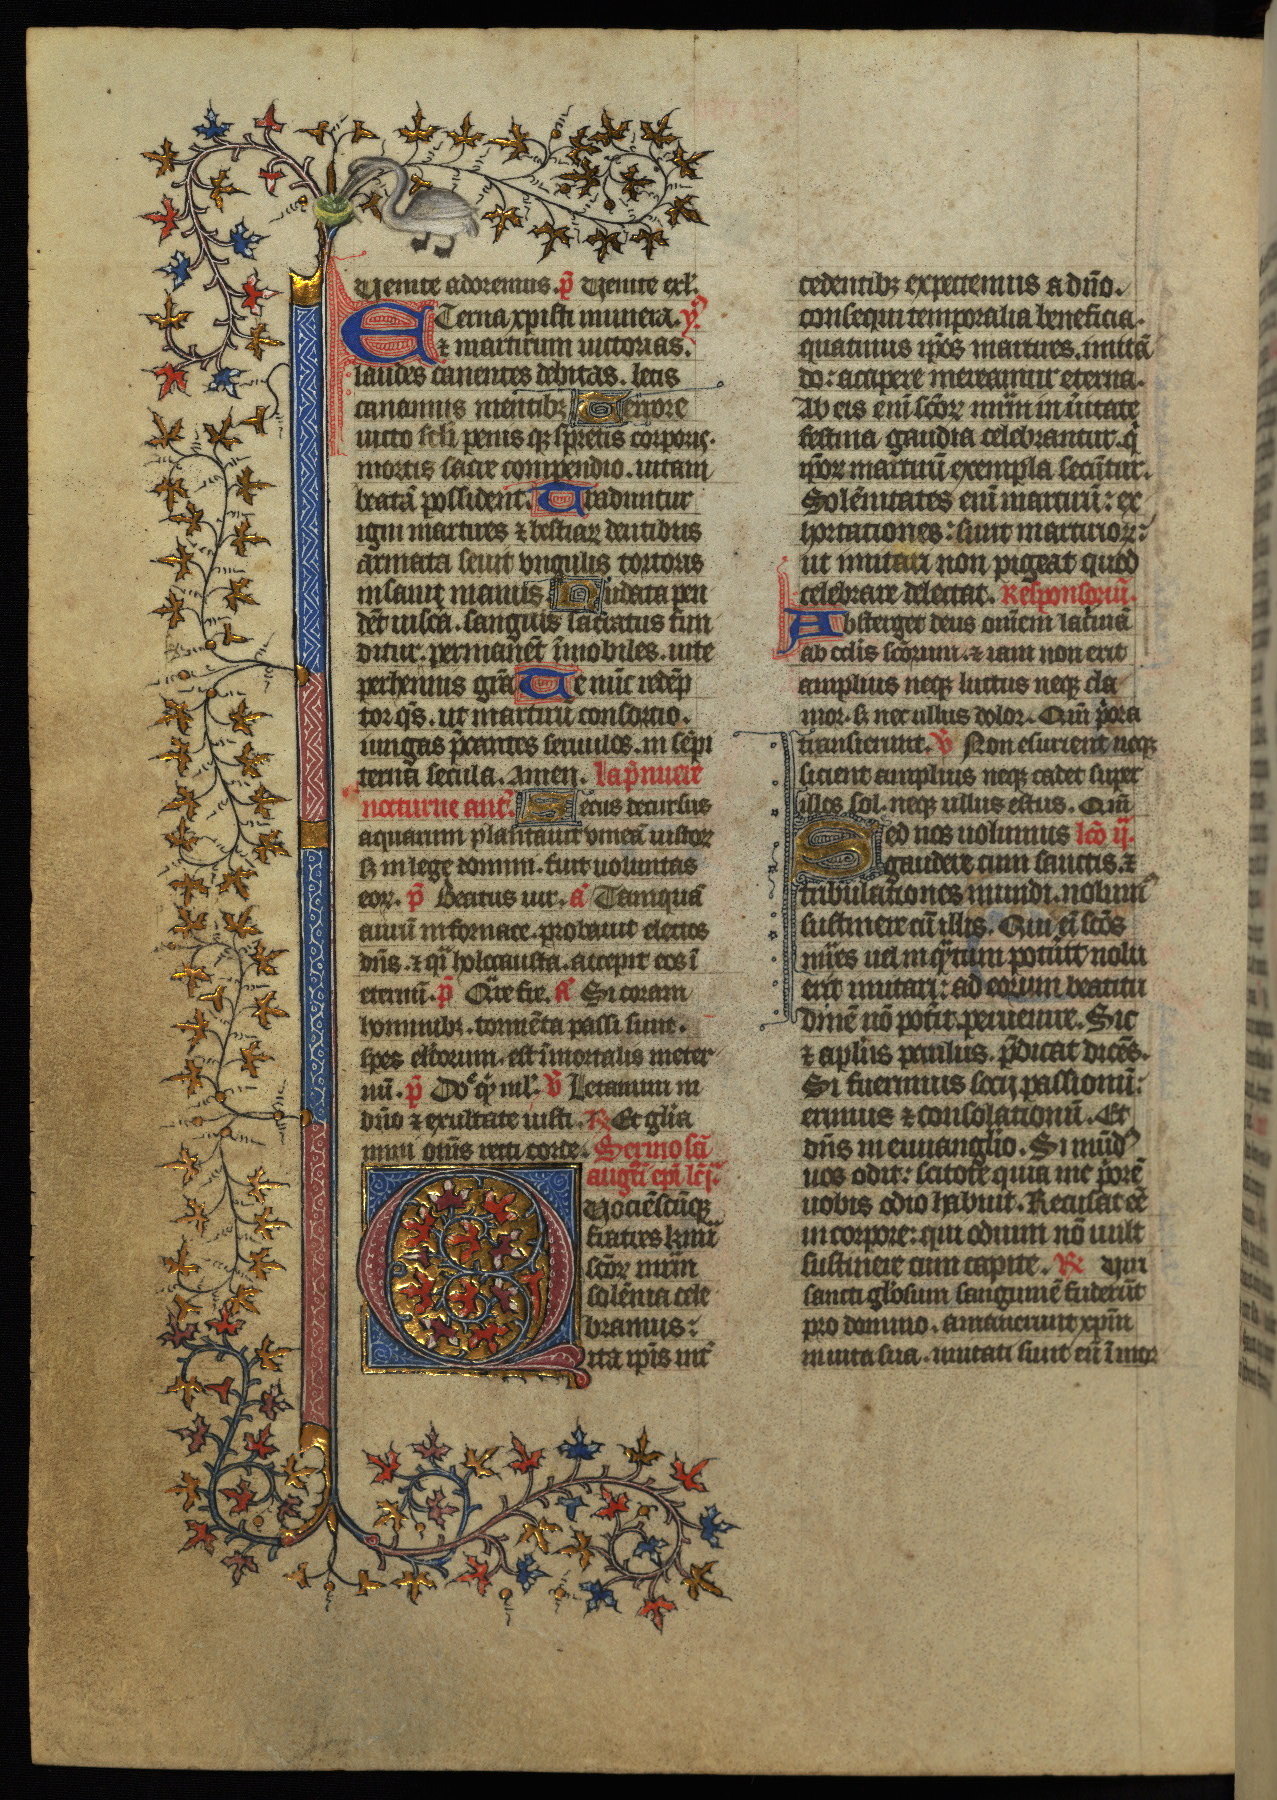 Venite adoremus. p̄s Venite exl'.
ETerna xpisti munera. ymͦ
⁊ martirum uictorias.
laudes canentes debitas. letis
canamus mentibꝫ Terrore
uicto seculi penis qꝫ spretis corporis.
mortis sacre compendio. uitam
beatā possident. Traduntur
igni martires ⁊ bestiaꝝ dentibus
armata seuit vngulis tortoris
insani manus Nudata pen
dēt uisca. sanguis sacratus fun
ditur. permanēt īmobiles. uite
perhennis grā Te nūc redēp
tor qs̄. ut martirū consorcio.
iungas p̄cantes seruulos. in sēpi
terna secula. Amen. In p̄ nuere
nocturne antͣ. Secus decursus
aquarum plantauit vineā iustoꝝ
⁊ in lege domini. fuit uoluntas
eoꝝ. p̄ Beatus uir. a̾ Tamquā
aurū in fornace. probauit electos
dn̄s. ⁊ qͣi holocausta. accepit eos ī
eternū. p̄ Qͣre fre. a̾ Si coram
hominibꝫ. tormēta passi sunt.
spes electorum. est īmortalis in eter
nū. p̄ Dn̄e qͥd ml'. v̄ Letamini in
dn̄o ⁊ exultate iusti. R Et glīa
mini om̄s recti corde. Sermo scī
augustī epī lc̄ j.
Quociēscūqꝫ
fratres kmī
scōꝝ mr̄m
solēnia cele
bramus:
ita ip̄is int͛
cedentibꝫ expectemus a dn̄o.
consequi temporalia beneficia.
quatinus ip̄os martires. imitā
do: accipere mereamur eterna.
Ab eis enī scōꝝ mr̄m in ūitate
festiua gaudia celebrantur. q̄
ip̄oꝝ martirū exempla secūtur.
Solēnitates enī martirū: ex
hortationes: sunt martirioꝝ:
ut imitari non pigeat quod
celebrare delectat. Responsoriū.
Absterget deus omēm lacrimā
ab oclis scōrum. ⁊ iam non erit
amplius neqꝫ luctus neqꝫ cla
mor. sꝫ nec ullus dolor. Qm̄ p̄ora
transierunt. v̄ Non esurient neqꝫ
sicient amplius neqꝫ cadet super
illos sol. neqꝫ ullus estus. Qm̄
Sed nos uolumus lc̄o ij.
gaudere cum sanctis. ⁊
tribulationes mundi. nolumꝰ
sustinere cū illis. Qui eī scōs
mr̄es uel in qͣtum potuīt nolu
erit imitari: ad eorum beatitu
dinē nō potīt peruenire. Sic
⁊ apl'us paulus. p̄dicat dicēs.
Si fuerimus socij passionū:
erimus ⁊ consolationū. Et
dn̄s in euuanglīo. Si mūdꝰ
uos odit: scitote quia me p̄orē
uobis odio habuit. Recusat eē
in corpore: qui odium nō uult
sustinere cum capite. R̄ Viri
sancti glōsum sanguinē fuderūt
pro domino. amauerunt xpm̄
in uita sua. imitati sunt eū ī mor